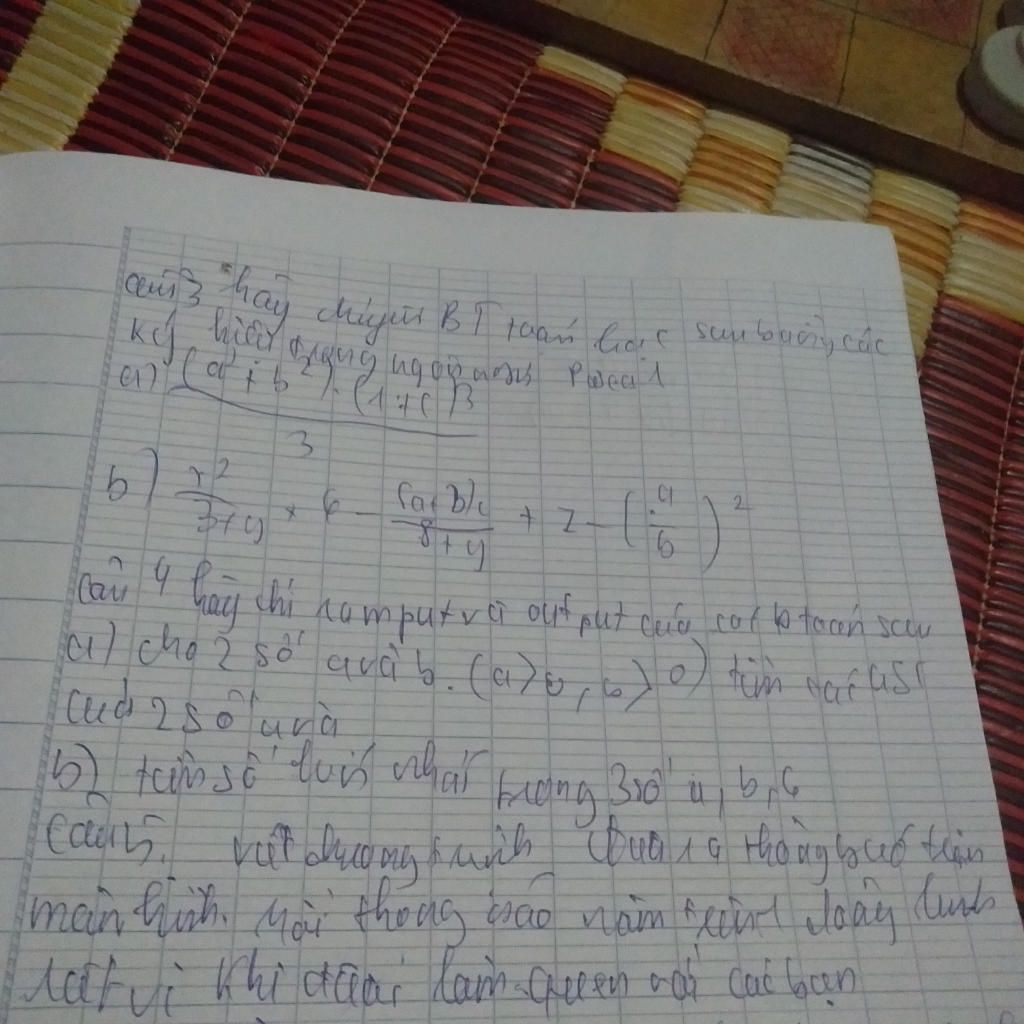 câu 3 hãy chuyển BT toán học sau bằng các
ký hiệu trong ngôn ngữ Pascal
a) (a² + b²). (1 + c)3
3
b) x² / 3 + y + 6 - (a + b)c / 8 + y + z - (a / b)²
câu 4 hãy chỉ ra input và output của các b toán sau
a) cho 2 số a và b. (a > 0, b > 0) tìm
của 2 số a và
b) tìm số lớn nhất trong 3 số a, b, c
câu 5. viết chương trình đưa ra thông báo trên
màn hình. Mỗi thông báo nằm trên 1 dòng
rất vui khi được làm quen với các bạn